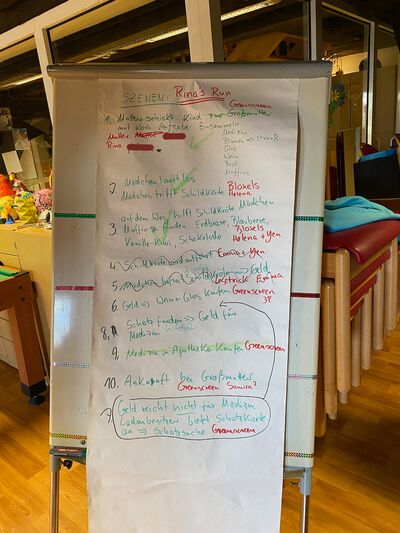 SZENEN: Rina's Run
Greenscreen
1. Mutter schickt Kind zur Großmutter
mit Korb. Aufgabe: Einsammeln
Mutter
Rina
Medizin
Blumen → Strauß
Glas
Wein
Brot
Muffins
2. Mädchen läuft los
Mädchen trifft Schildkröte Bloxels
Helena
auf dem Weg hilft Schildkröte Mädchen
3. Muffins finden Erdbeere, Blaubeere,
Vanille-Kiwi, Schokolade Bloxels
Helena + Yen
4. Schildkröte wird entführt + Yen
5. Mädchen befreit Schildkröte → Geld
Emma
6. Geld → Wein + Glas kaufen Greenscreen
8. Schatz finden → Geld für
Medizin
9. Medizin in Apotheke kaufen Greenscreen
10. Ankunft bei Großmutter
Greenscreen Samira?
7. Geld reicht nicht für Medizin
Ladenbesitzer bietet Schatzkarte
an → Schatzsuche Greenscreen